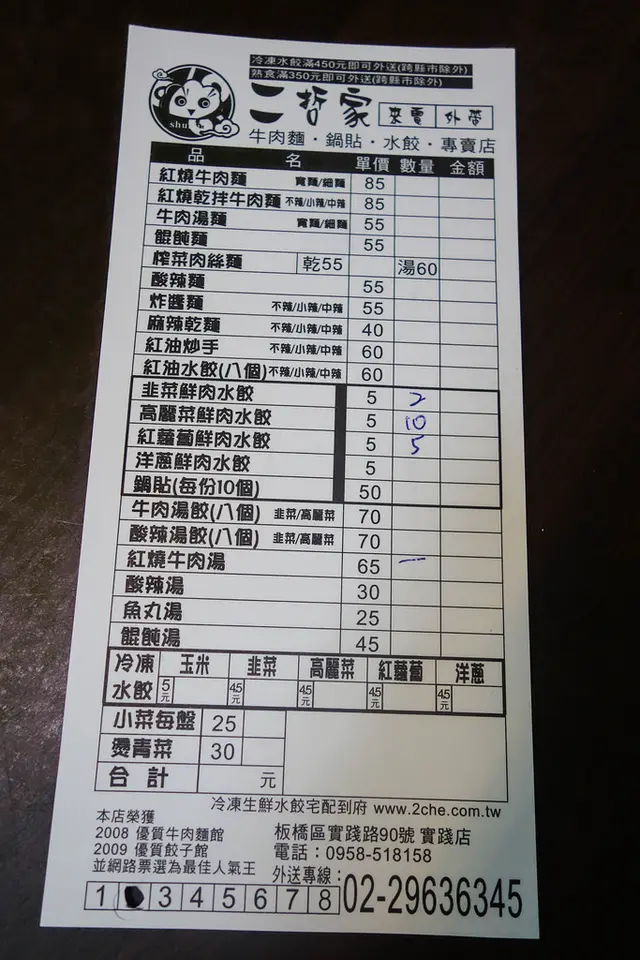 冷凍水餃滿450元即可外送(跨縣市除外)
熟食滿350元即可外送(跨縣市除外)
shu
二哲家 來賓 外帶
牛肉麵・鍋貼・水餃・專賣店
品 名 單價 數量 金額
紅燒牛肉麵 寬麵/細麵 85
紅燒乾拌牛肉麵 不辣/小辣/中辣 85
牛肉湯麵 寬麵/細麵 55
餛飩麵 55
榨菜肉絲麵 乾55 湯60
酸辣麵 55
炸醬麵 不辣/小辣/中辣 55
麻辣乾麵 不辣/小辣/中辣 40
紅油炒手 不辣/小辣/中辣 60
紅油水餃(八個) 不辣/小辣/中辣 60
韭菜鮮肉水餃 5 2
高麗菜鮮肉水餃 5 10
紅蘿蔔鮮肉水餃 5 5
洋蔥鮮肉水餃 5
鍋貼(每份10個) 50
牛肉湯餃(八個) 韭菜/高麗菜 70
酸辣湯餃(八個) 韭菜/高麗菜 70
紅燒牛肉湯 65 一
酸辣湯 30
魚丸湯 25
餛飩湯 45
冷凍 玉米 韭菜 高麗菜 紅蘿蔔 洋蔥
水餃 5元 4.5元 4.5元 4.5元 4.5元
小菜每盤 25
燙青菜 30
合計 元
冷凍生鮮水餃宅配到府 www.2che.com.tw
本店榮獲
2008 優質牛肉麵館
2009 優質餃子館
並網路票選為最佳人氣王
板橋區實踐路90號 實踐店
電話：0958-518158
外送專線：02-29636345
1 3 4 5 6 7 8